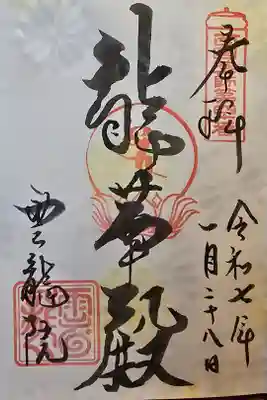 奉拝
令和七年
一月二十八日
龍華殿
雲龍院